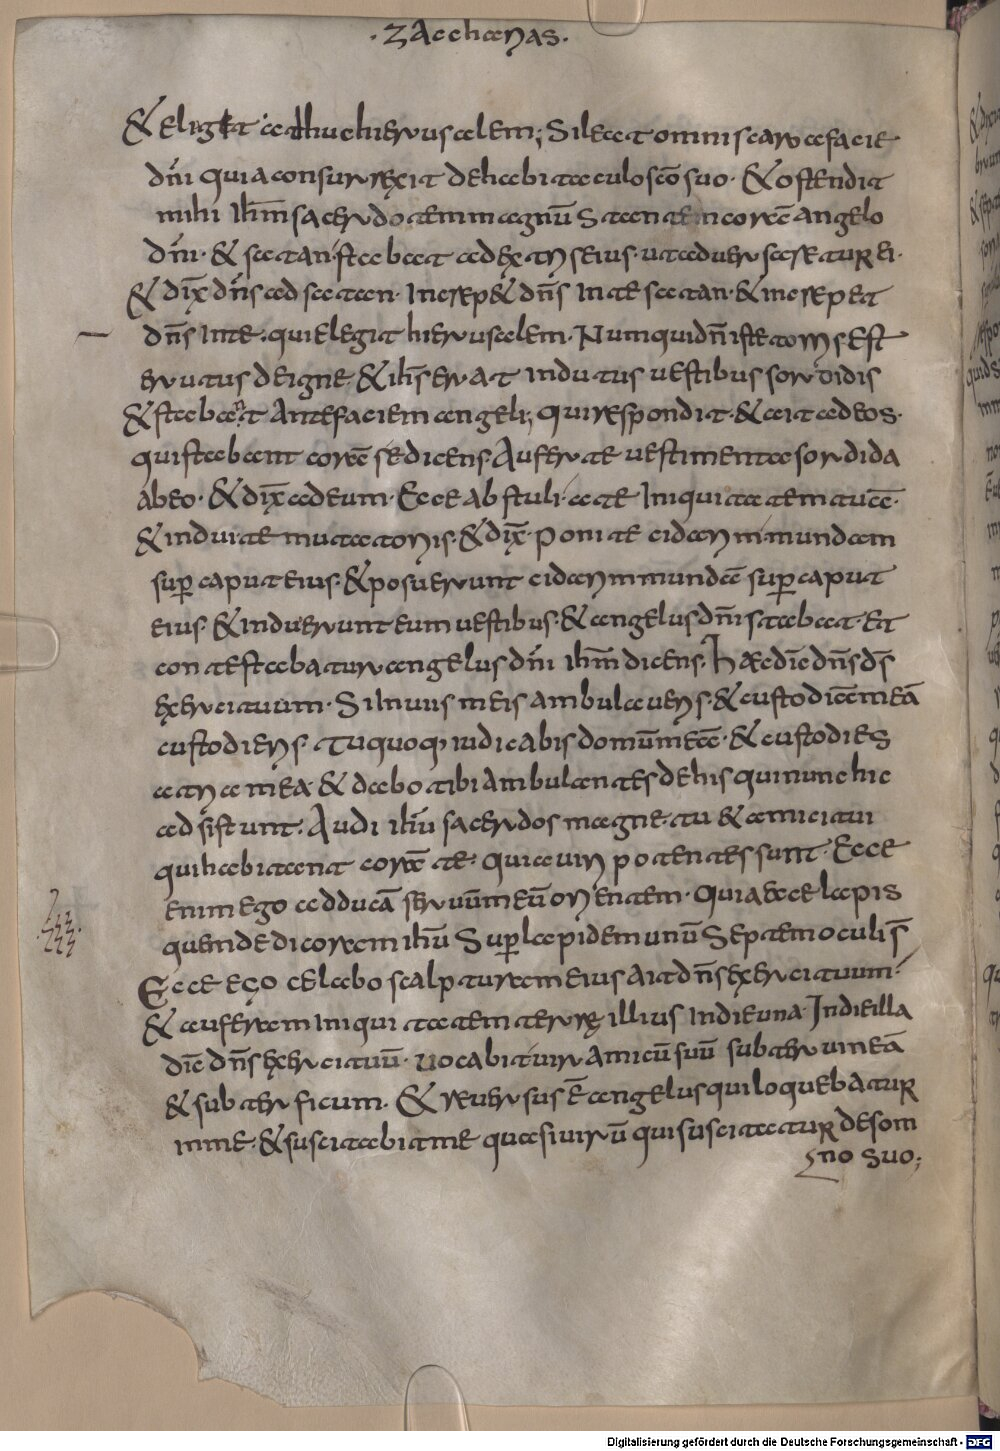 ·ZAcchanas·
& eligȩt adhuc hierusalem; Sileat omnis caro a facie
dn̄i quia consurrexit de habitaculo sc̄o suo· & ostendit
mihi ih̄m sacerdotem magnū Stantem corā angelo
dn̄i· & satan stabat ad dextris eius· ut aduersaretur ei·
& dix̄ dn̄s ad satan· Increp& dn̄s In te satan· & increpet
dn̄s In te· qui elegit hierusalem· Numquid n̄ iste torris est
erutus de igne· & ih̄s erat indutus uestibus sordidis
& stabant Ante faciem angeli; qui respondit· & ait ad eos·
qui stabant corā se dicens· Auferte uestimenta sordida
ab eo· & dix̄ ad eum· Ecce abstuli a te Iniquitatem tuā·
& indui te mutatoriis· & dix̄· ponite cidarim mundam
sup̄ caput eius· & posuerunt cidarim mundā sup̄ caput
eius· & Induerunt eum uestibus· & angelus dn̄i stabat· Et
contestabatur angelus dn̄i ih̄m dicens· Haec dīc dn̄s d̄s
exercituum· Si In uiis meis ambulaueris· & custodiā meā
custodieris· Tu quoq, iudicabis domū meā· & custodies
atria mea· & dabo tibi Ambulantes de his qui nunc hic
adsistunt· Audi ih̄u sacerdos magne· tu & amici tui
qui habitant corā te· quia uiri portentes sunt· Ecce
enim ego adducā seruū meū orientem· Quia ecce lapis
quem dedi corem ih̄u Sup̄ lapidem unū Septem oculi s̄
Ecce ego celabo scalpturam eius Ait dn̄s exercituum·
& auferam Iniquitatem terrę illius In die una· In die illa
dīc dn̄s exercituū· uocabit uir Amicū suū subter uineā
& subter ficum· & reuersus ē angelus qui loquebatur
in me· & suscitabit me quasi uirū qui suscitatur de som
no suo;